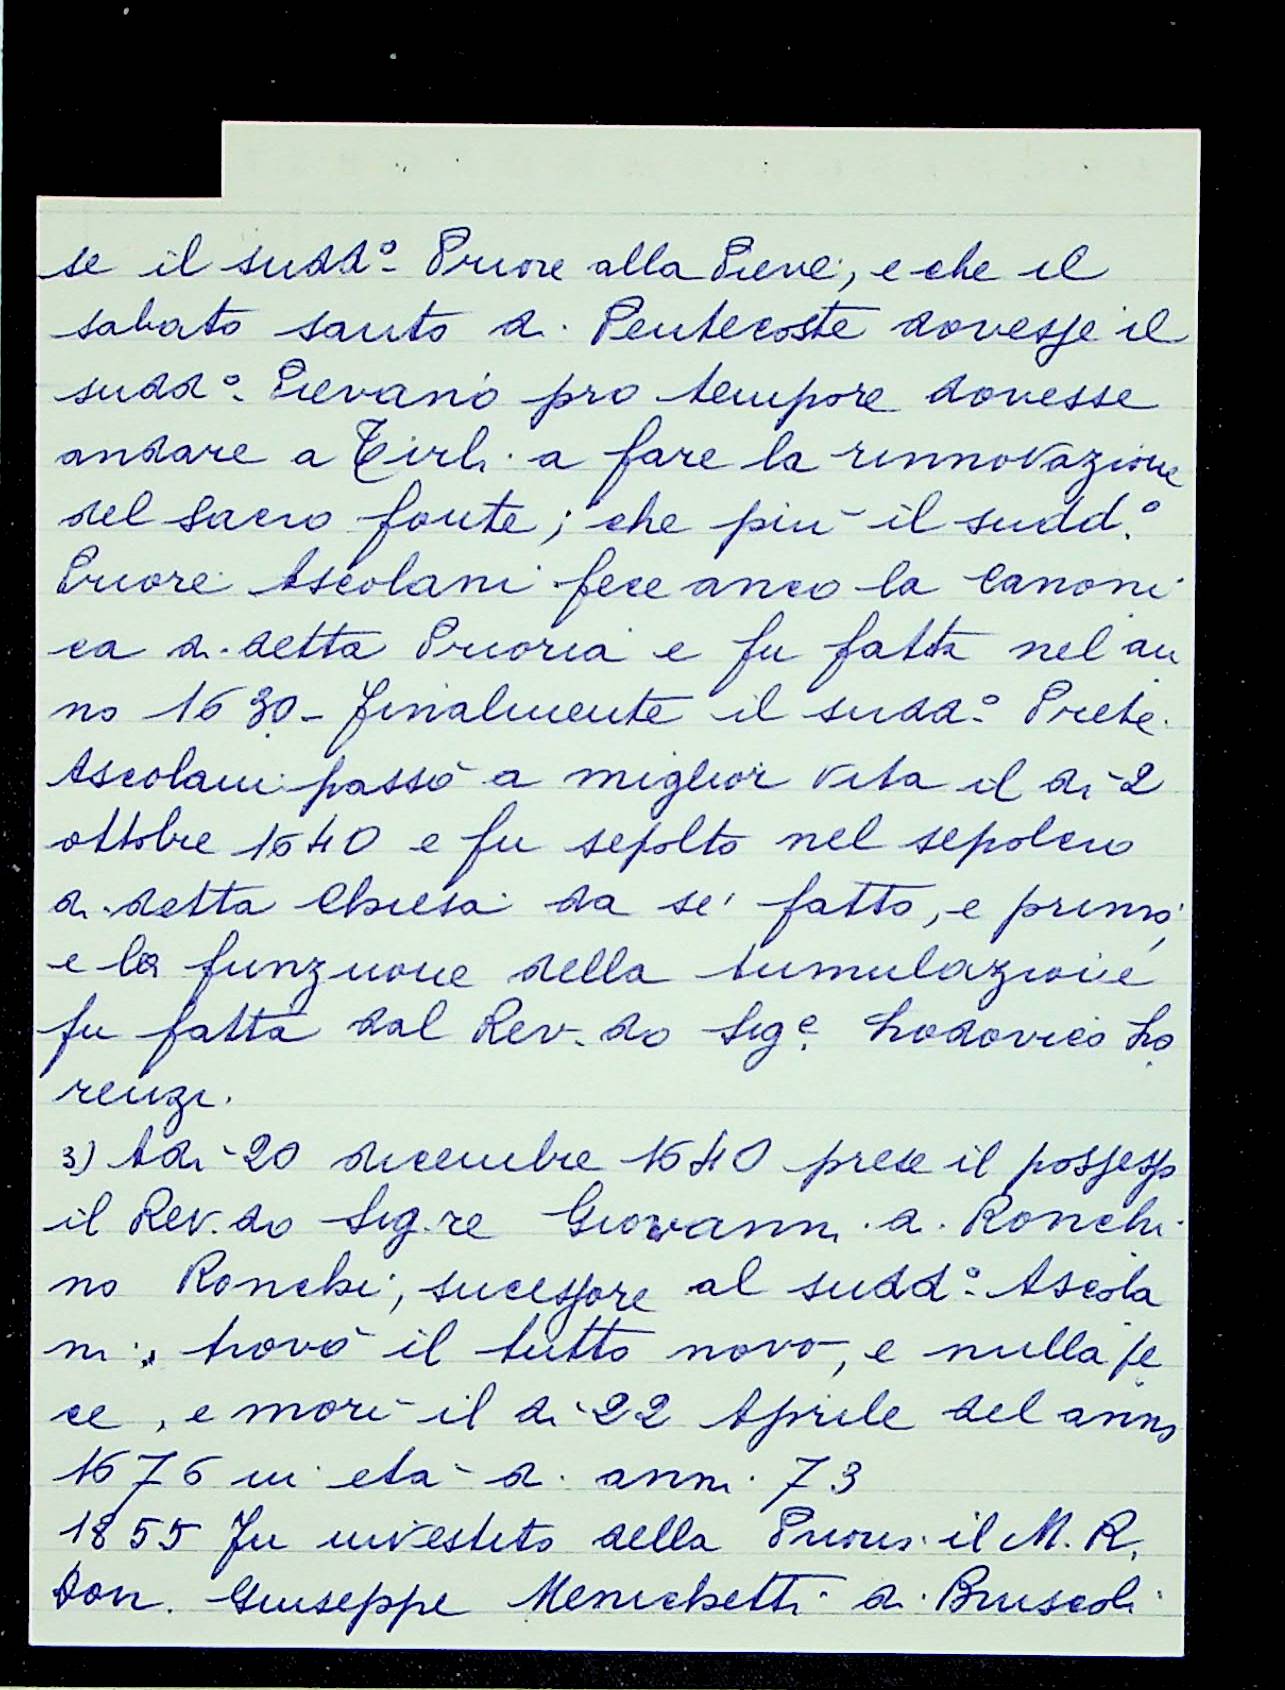 se il sudd.º Priore alla Pieve, e che il
sabato santo di Pentecoste dovesse il
sudd.º Pievano pro tempore dovesse
andare a Tirli a fare la rinnovazione
del Sacro fonte; che più il sudd.º
Priore Ascolani fece anco la Canoni
ca di detta Prioria e fu fatta nel an
no 1630 - finalmente il sudd.º Prete
Ascolani passò a miglior vita il dì 2
ottobre 1640 e fu sepolto nel sepolcro
di detta Chiesa da sé fatto, e primo,
e la funzione della tumulazione
fu fatta dal Rev.do Sig.e Lodovico Lo
renzi.
3) Adì 20 dicembre 1640 prese il possesso
il Rev.do Sig.re Giovanni di Ronchi
no Ronchi, sucessore al sudd.º Ascola
ni, trovò il tutto novo, e nulla fe
ce, e morì il dì 22 Aprile del anno
1676 in età di anni 73
1855 Fu investito della Prioria il M. R.
Don. Giuseppe Menichetti di Bruscoli